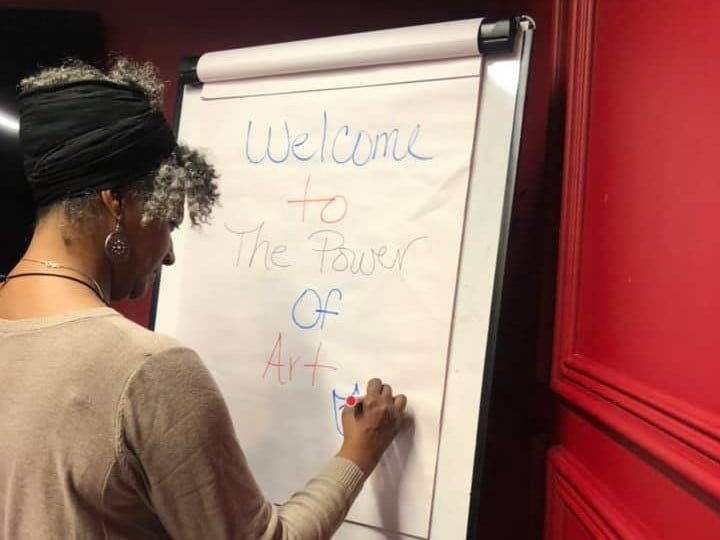 Welcome
to
The Power
Of
Art